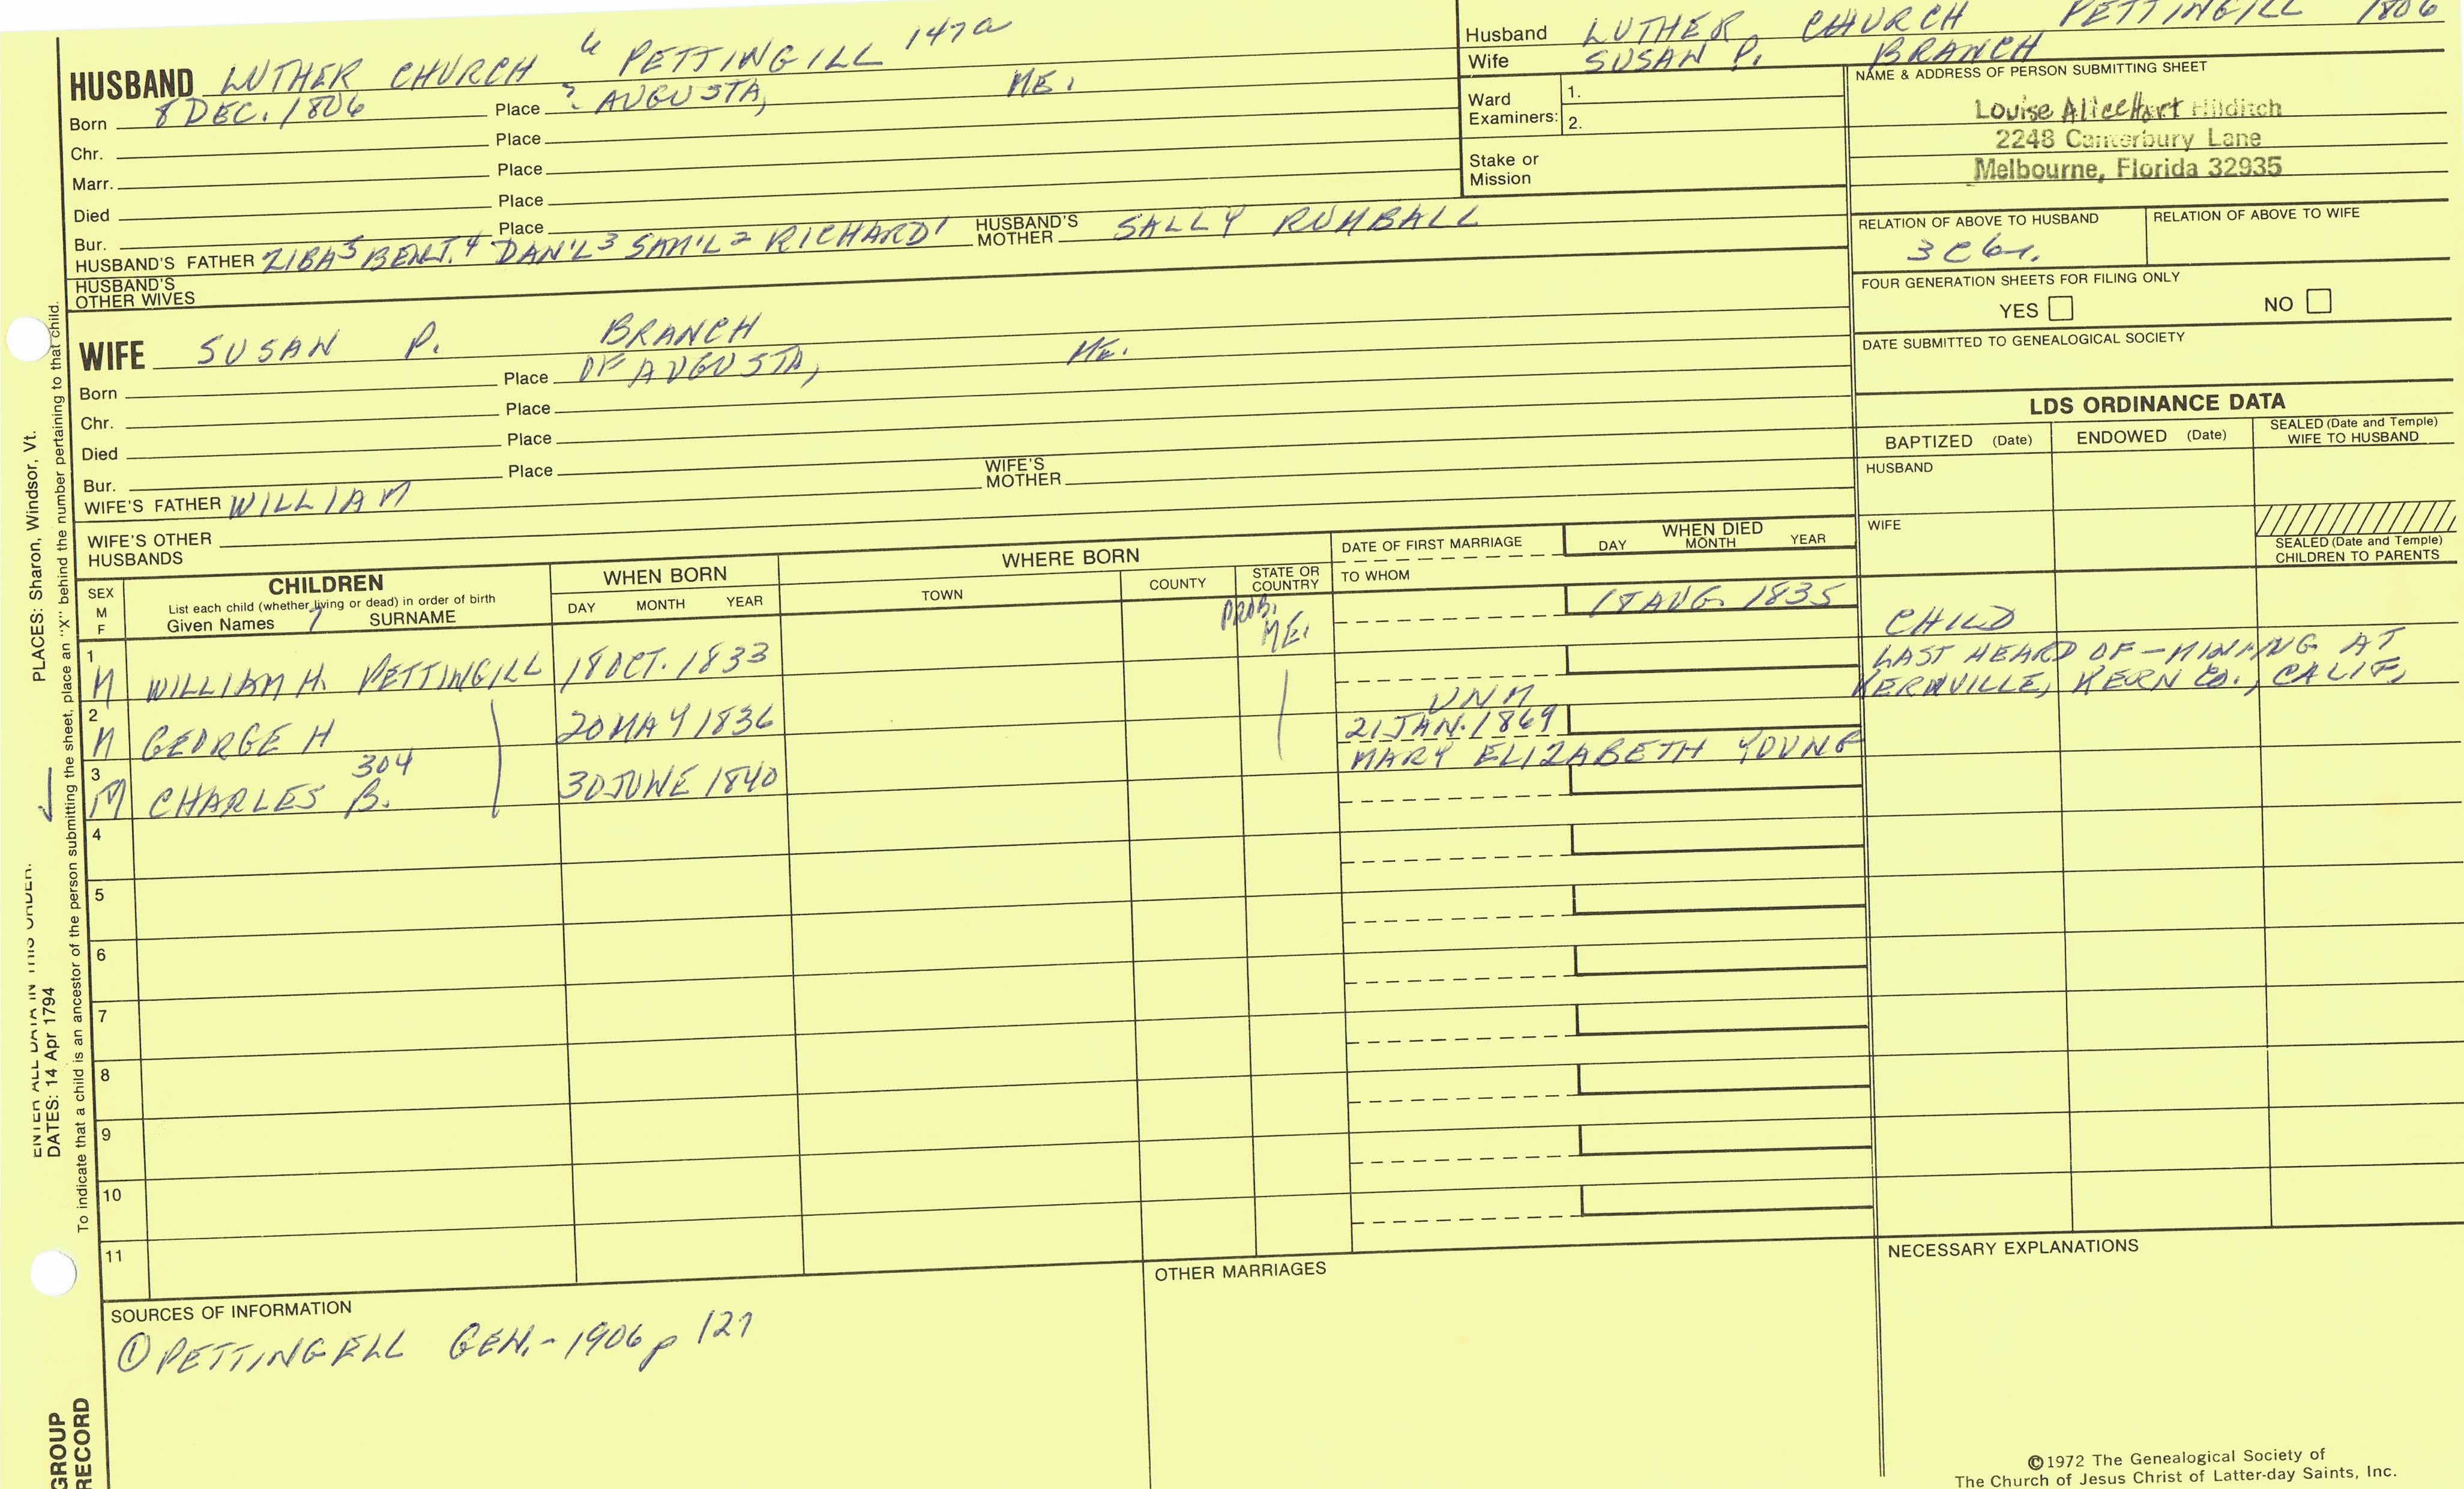 Husband LUTHER CHURCH PETTINGILL 1806
Wife SUSAN P. BRANCH
HUSBAND LUTHER CHURCH 6 PETTINGILL 147a
Born 8 DEC. 1806 Place ? AUGUSTA, ME.
Chr. Place
Marr. Place
Died Place
Bur. Place
HUSBAND'S FATHER ZIBA5 BENT.4 DAN'L3 SAM'L2 RICHARD1 HUSBAND'S MOTHER SALLY RUMBALL
HUSBAND'S
OTHER WIVES
Ward
Examiners: 1.
2.
Stake or
Mission
NAME & ADDRESS OF PERSON SUBMITTING SHEET
Louise Alice Hart Hilditch
2248 Canterbury Lane
Melbourne, Florida 32935
RELATION OF ABOVE TO HUSBAND RELATION OF ABOVE TO WIFE
3C6r.
FOUR GENERATION SHEETS FOR FILING ONLY
YES NO
DATE SUBMITTED TO GENEALOGICAL SOCIETY
WIFE SUSAN P. BRANCH
Born Place OF AUGUSTA, ME.
Chr. Place
Died Place
Bur. Place
WIFE'S FATHER WILLIAM WIFE'S MOTHER
WIFE'S OTHER
HUSBANDS
LDS ORDINANCE DATA
BAPTIZED (Date) ENDOWED (Date) SEALED (Date and Temple)
WIFE TO HUSBAND
HUSBAND
WIFE
SEALED (Date and Temple)
CHILDREN TO PARENTS
SEX
M
F
CHILDREN
List each child (whether living or dead) in order of birth
Given Names 7 SURNAME
WHEN BORN
DAY MONTH YEAR
WHERE BORN
TOWN COUNTY STATE OR
COUNTRY
DATE OF FIRST MARRIAGE
TO WHOM
WHEN DIED
DAY MONTH YEAR
1 M WILLIAM H. PETTINGILL 18 OCT. 1833 PROB. ME. 18 AUG. 1835 CHILD
2 M GEORGE H 20 MAY 1836 UNM LAST HEARD OF - MINING AT
KERNVILLE, KERN CO., CALIF.
3 M CHARLES B. 304 30 JUNE 1840 21 JAN. 1869
MARY ELIZABETH YOUNG
4
5
6
7
8
9
10
11
SOURCES OF INFORMATION
① PETTINGELL GEN. - 1906 p 127
OTHER MARRIAGES
NECESSARY EXPLANATIONS
©1972 The Genealogical Society of
The Church of Jesus Christ of Latter-day Saints, Inc.
ENTER ALL DATA IN THIS ORDER:
PLACES: Sharon, Windsor, Vt.
DATES: 14 Apr 1794
To indicate that a child is an ancestor of the person submitting the sheet, place an "X" behind the number pertaining to that child.
GROUP
RECORD